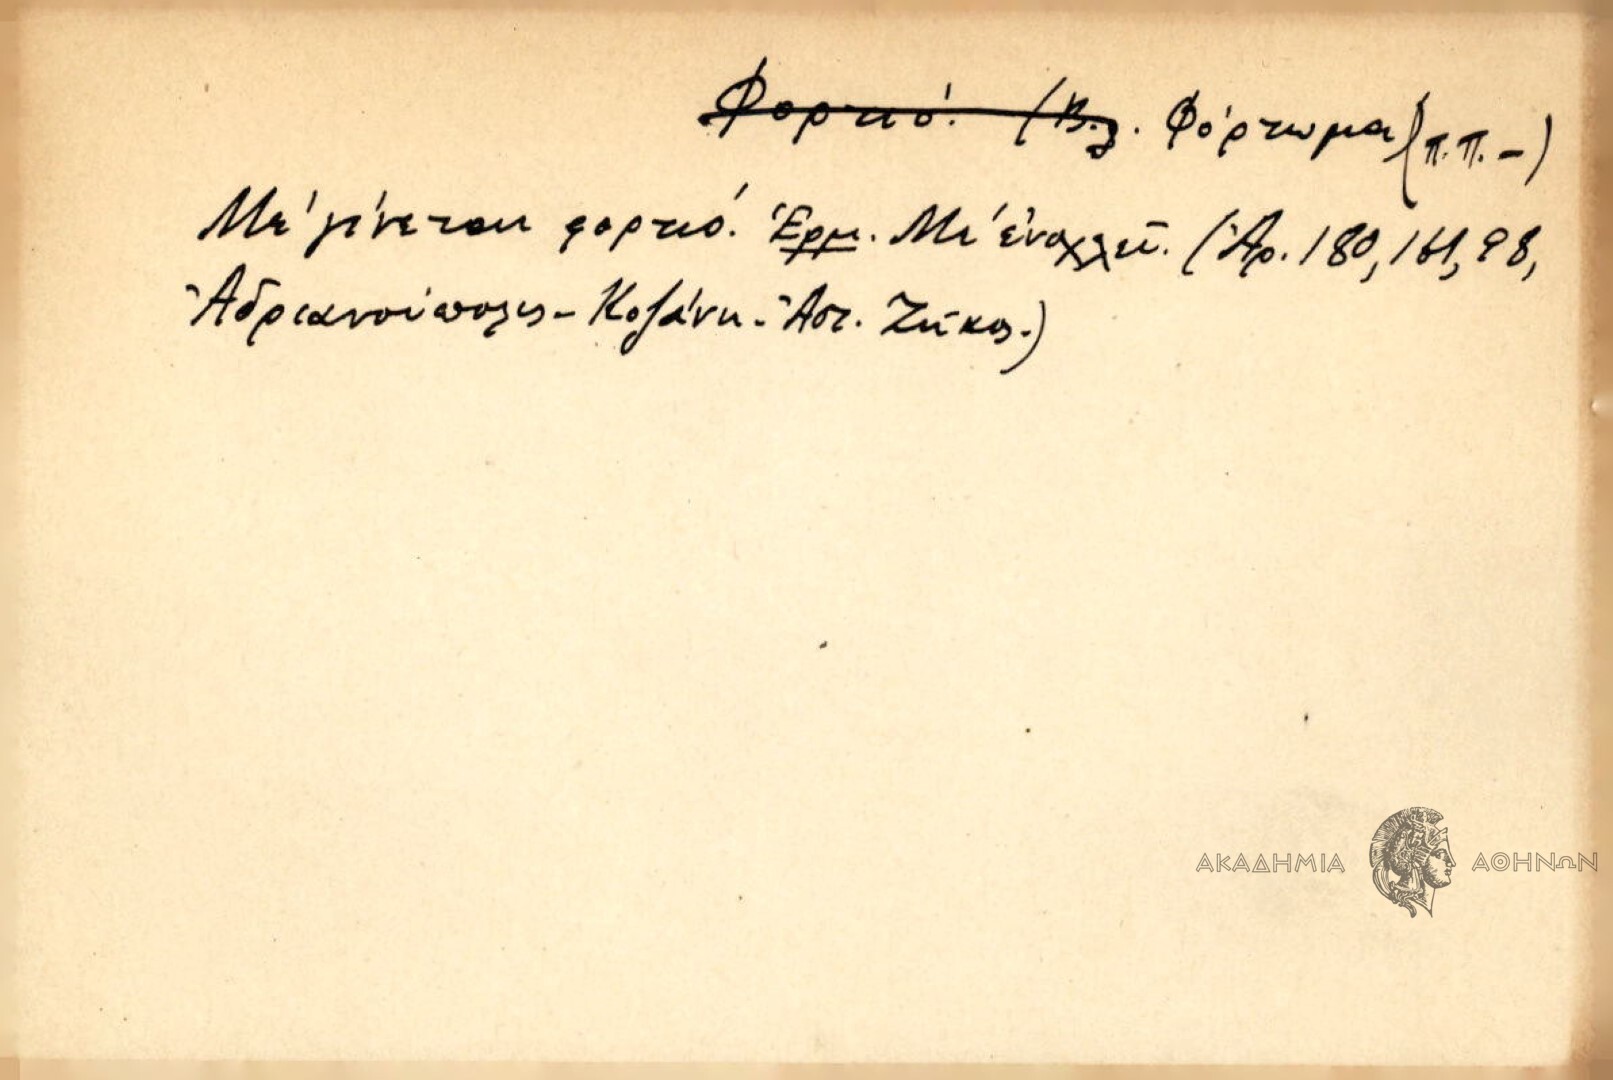 Φορτιό. (Βλ. Φόρτωμα (π.π. –)
Μέ γίνεται φορτιό. Ἑρμ. Μέ ἐνοχλεῖ. (Ἀρ. 180, 161, 98,
Ἀδριανούπολις – Κοζάνη. Ἀστ. Ζήκος.)
ΑΚΑΔΗΜΙΑ ΑΘΗΝΩΝ